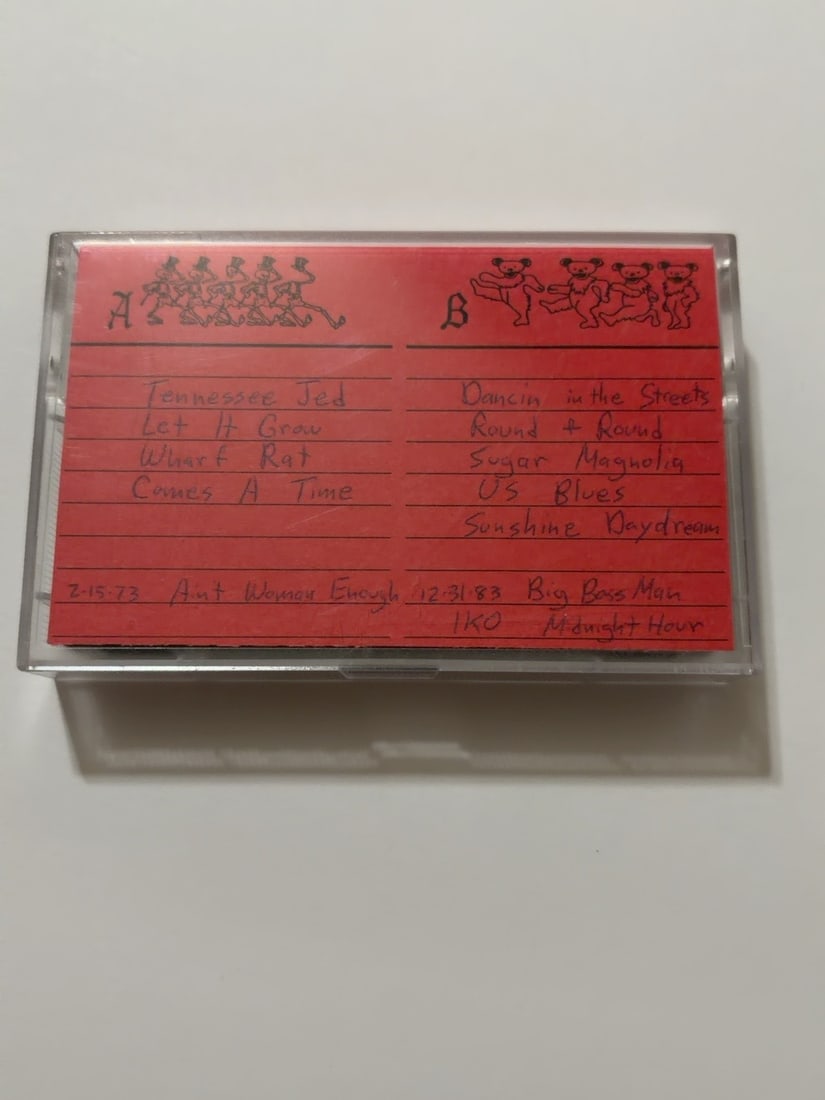 A
Tennessee Jed
Let It Grow
Wharf Rat
Comes A Time
2-15-73 Aint Woman Enough
B
Dancin in the Streets
Round + Round
Sugar Magnolia
US Blues
Sunshine Daydream
12-31-83 Big Boss Man
IKO Midnight Hour